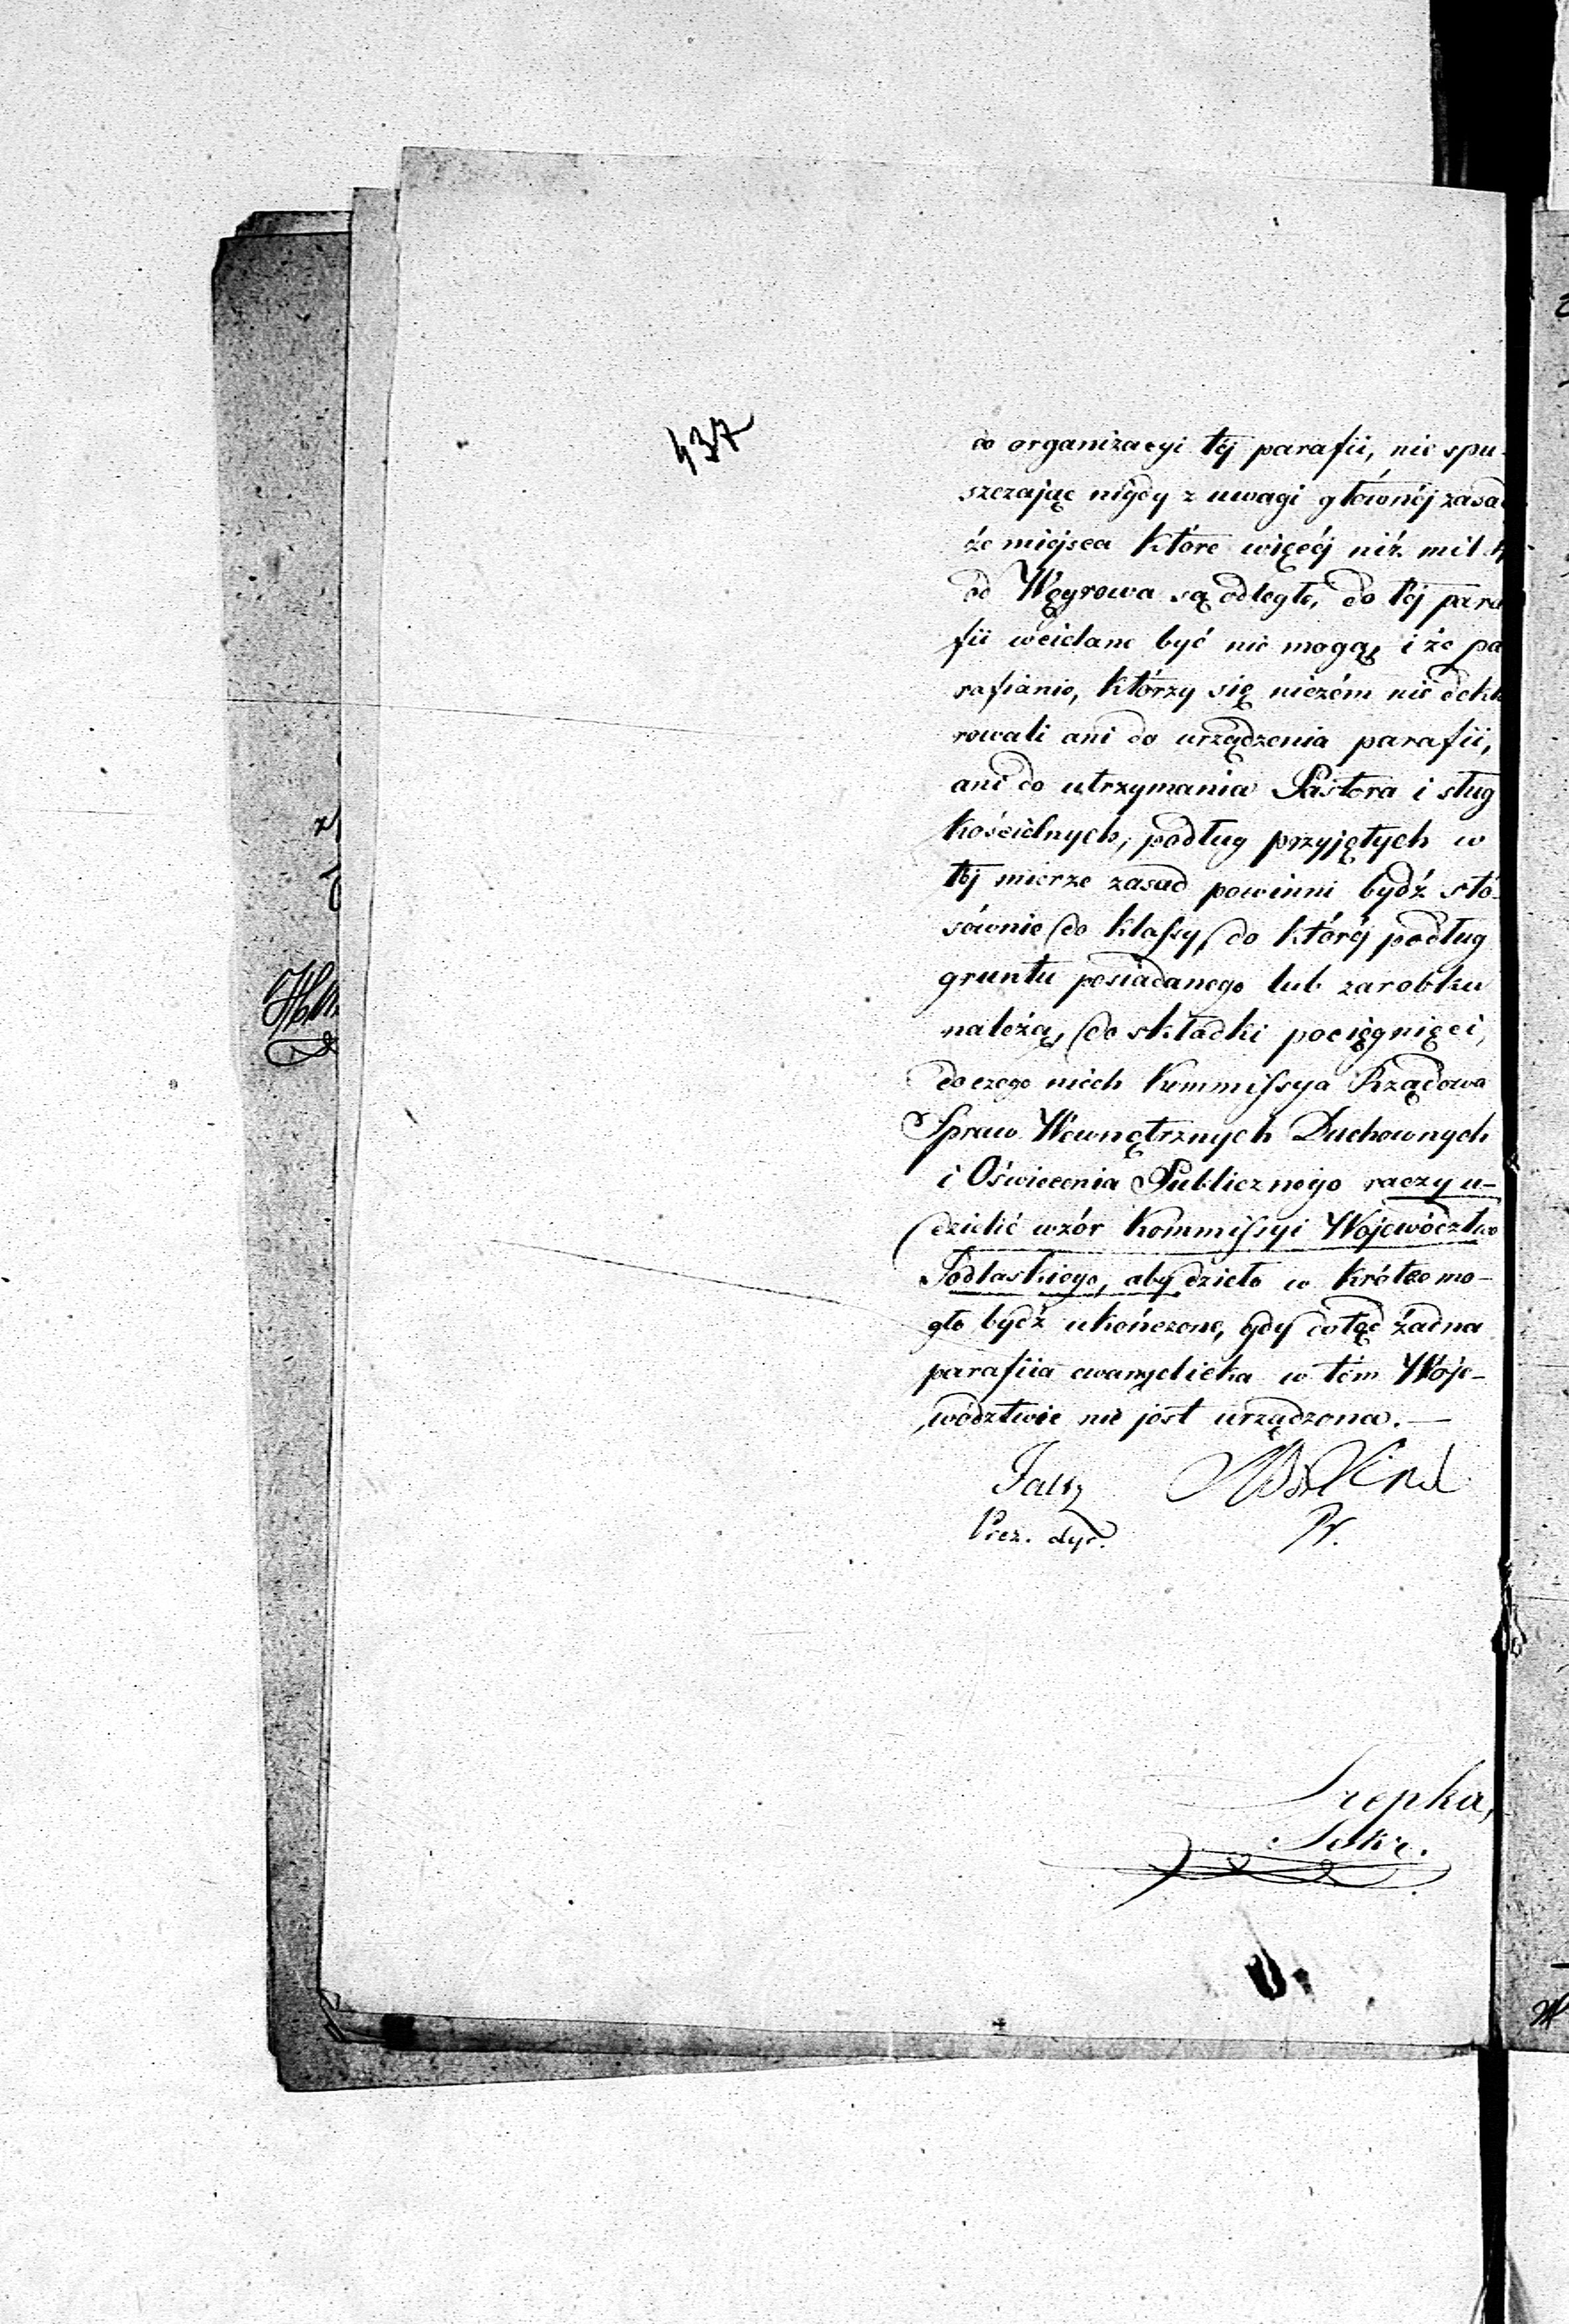 437
do organizacyi téj parafii, nie spu-
szczając nigdy z uwagi głównéj zasad
że miejsca które więcéj niż mil 4
od Węgrowa są odległe, do téj para
fii wcielane być nie mogą, i że pa
rafianie, którzy się niczém nie dekla
rowali ani do urządzenia parafii,
ani do utrzymania Pastora i sług
kościelnych, podług przyjętych w
téj mierze zasad powinni bydź stó-
sównie do klassy, do któréj podług
gruntu posiadanego lub zarobku
należą, do składki pociągnięci,
do czego niech Kommissya Rządowa
Spraw Wewnętrznych Duchownych
i Oświecenia Publicznego raczy u-
dzielić wzór Kommissyi Województwa
Podlaskiego, aby dzieło w krótce mo-
gło bydź ukończone, gdy dotąd żadna
parafiia ewanjelicka w tém Woje-
wództwie nie jest urządzona.—
Prez. dyr. Pr.
Szepka,
Sekr.